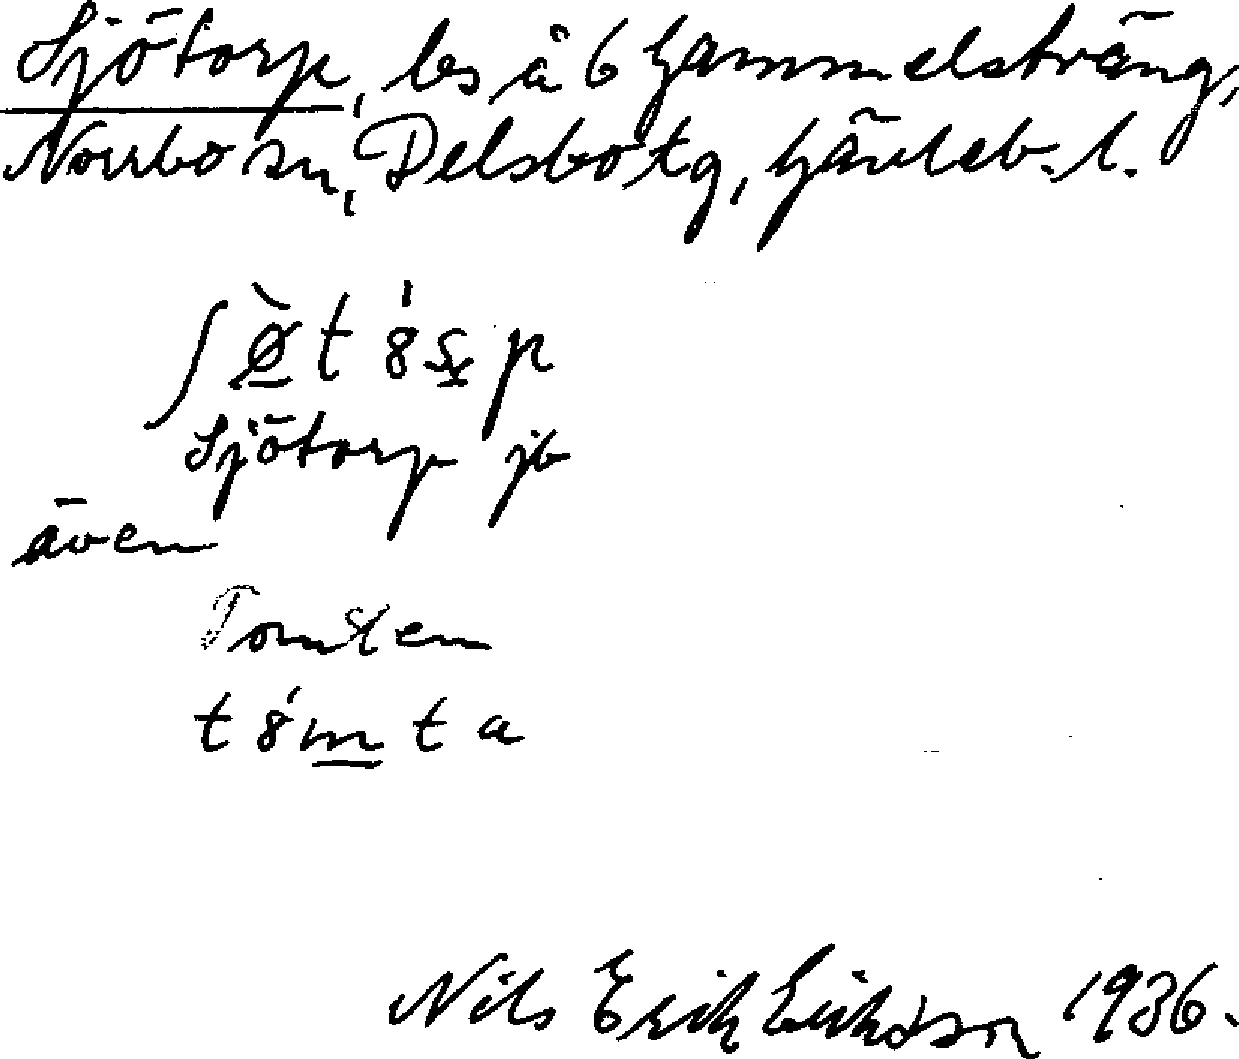 Sjötorp, lgs å 6 Gammelsträng,
Norrbo sn, Delsbo tg, Gävleb. l.
ʃø̀t8́rp
Sjötorp jb
även
Tomten
t8́mta
Nils Erik Eriksson 1936.